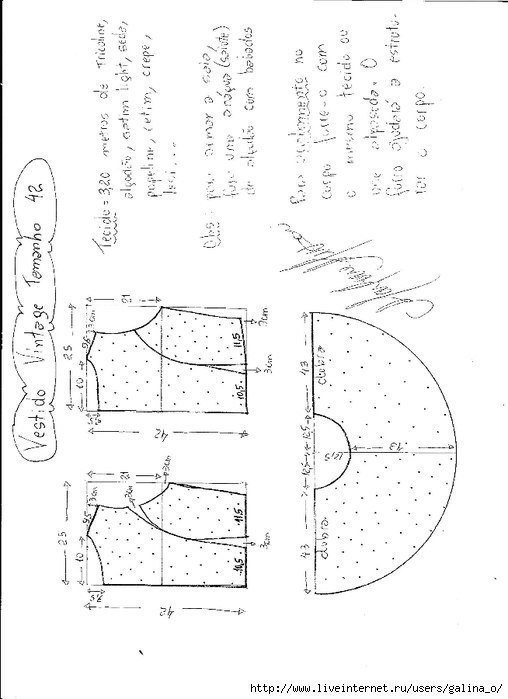 Vestido Vintage Tamanho 42
Tecido = 3,20 metros de tricoline,
algodão, cetim light, seda,
popeline, cetim, crepe,
Obs: para armar a saia,
uma anágua (saiote)
de algodão com babados
Para acabamento no
corpo forre-o com
o mesmo tecido ou
use O
forro ajudará a estrutu-
rar o corpo.
25
10
9,5
3cm
21
3cm
7,5
2cm
42
10,5
11,5
3cm
25
10
9,5
3cm
21
42
10,5
11,5
3cm
2cm
43
12,5
12,5
43
dobra
dobra
12,5
73
http://www.liveinternet.ru/users/galina_o/